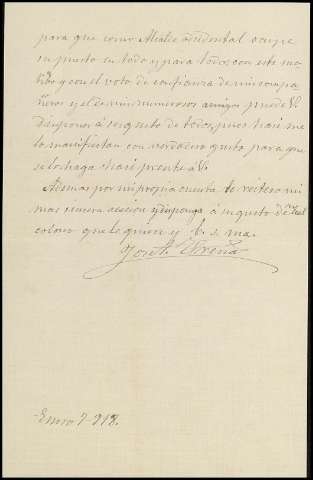 para que como Alcalde accidental ocupe
su puesto en todo y para todo; con este mo
tibo y con el voto de confianza de mis compa
ñeros y el de mis numerosos amigos puede V.
Disponer á su gusto de todos, pues haci me
lo manifiestan con verdadero gusto para que
se lo haga haci presente á V.
Ademas por mi propia cuenta le reitero mi
mas sincera adecion y disponga á su gusto de
colono que le quiere y b. s. ma.
José
Enero 7-918.